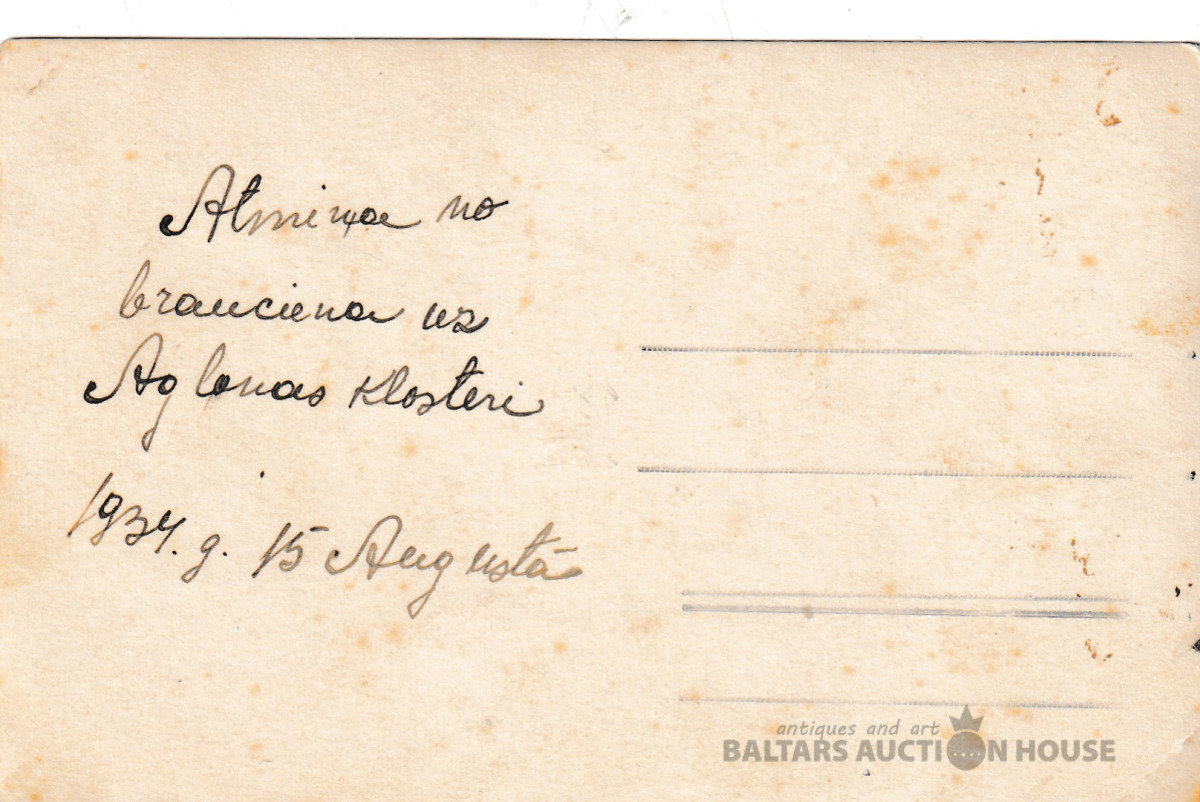 Atmiņa no
brauciena uz
Aglonas klosteri
1934. g. 15 Augustā
antiques and art
BALTARS AUCTION HOUSE